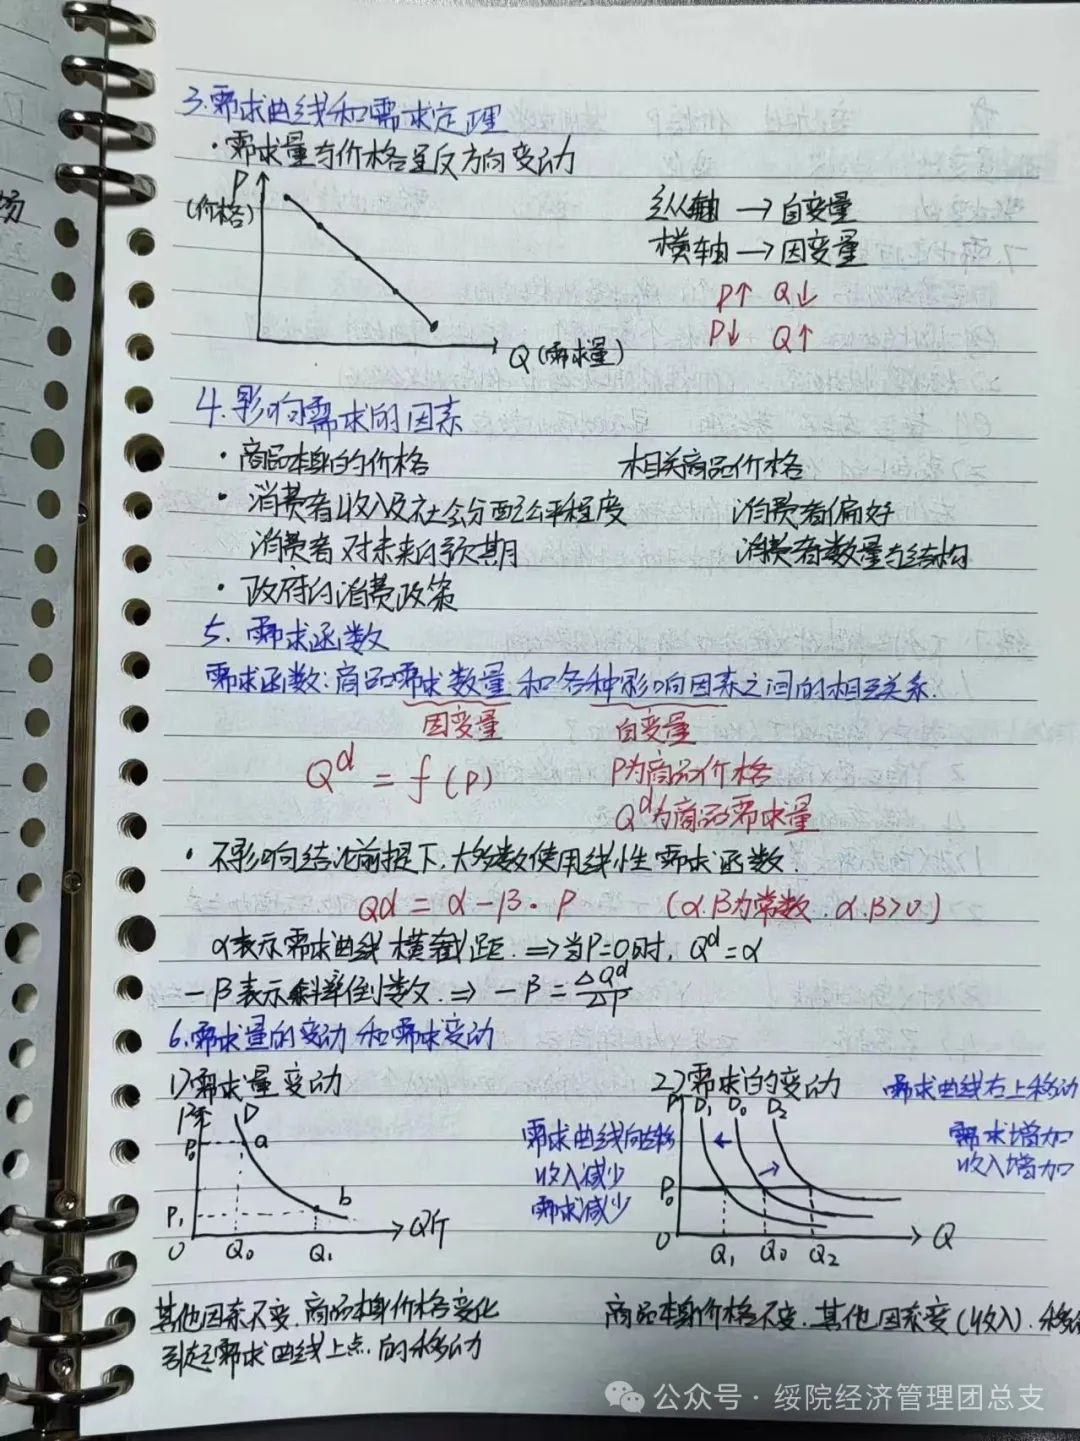 场
3.需求曲线和需求定理
·需求量与价格呈反方向变动
P
(价格)
Q (需求量)
纵轴 → 自变量
横轴 → 因变量
P↑ Q↓
P↓ Q↑
4.影响需求的因素
·商品本身的价格 相关商品价格
·消费者收入及社会分配公平程度 消费者偏好
消费者对未来的预期 消费者数量与结构
·政府的消费政策
5.需求函数
需求函数:商品需求数量和各种影响因素之间的相互关系.
因变量 自变量
Q^d = f(P) P为商品价格
Q^d为商品需求量
·不影响结论前提下,大多数使用线性需求函数.
Qd = α-β·P (α.β为常数.α.β>0)
α表示需求曲线横截距.⇒当P=0时,Q^d=α
-β表示斜率倒数.⇒ -β=ΔQ^d/ΔP
6.需求量的变动和需求变动
1)需求量变动
P元 D
P₀ a
P₁ b
O Q₀ Q₁ Q斤
其他因素不变.商品本身价格变化
引起需求曲线上点.的移动
2)需求的变动 需求曲线右上移动
P D₁ D₀ D₂
需求曲线向左移
收入减少
需求减少
需求增加
收入增加
P₀
O Q₁ Q₀ Q₂ Q
商品本身价格不变.其他因素变(收入).移
公众号·绥院经济管理团总支